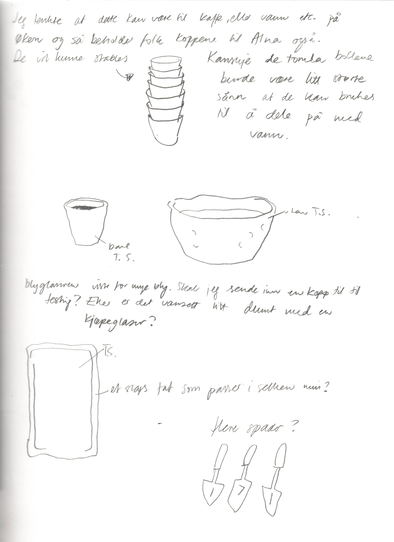 Jeg tenkte at dette kan være til kaffe, eller vann etc. på
økern og så beholder folk koppene til Alna også.
De vil kunne stables
Kanskje de tomla bollene
burde være litt større
sånn at de kan brukes
til å dele på med
vann.
bare
T.S.
T.S.
blyglasuren viser for mye bly. Skal jeg sende inn en kopp til til
testing? Eller er det uansett litt dumt med en
kjøpeglasur?
T.S.
et slags fat som passer i settene mine?
flere spader?